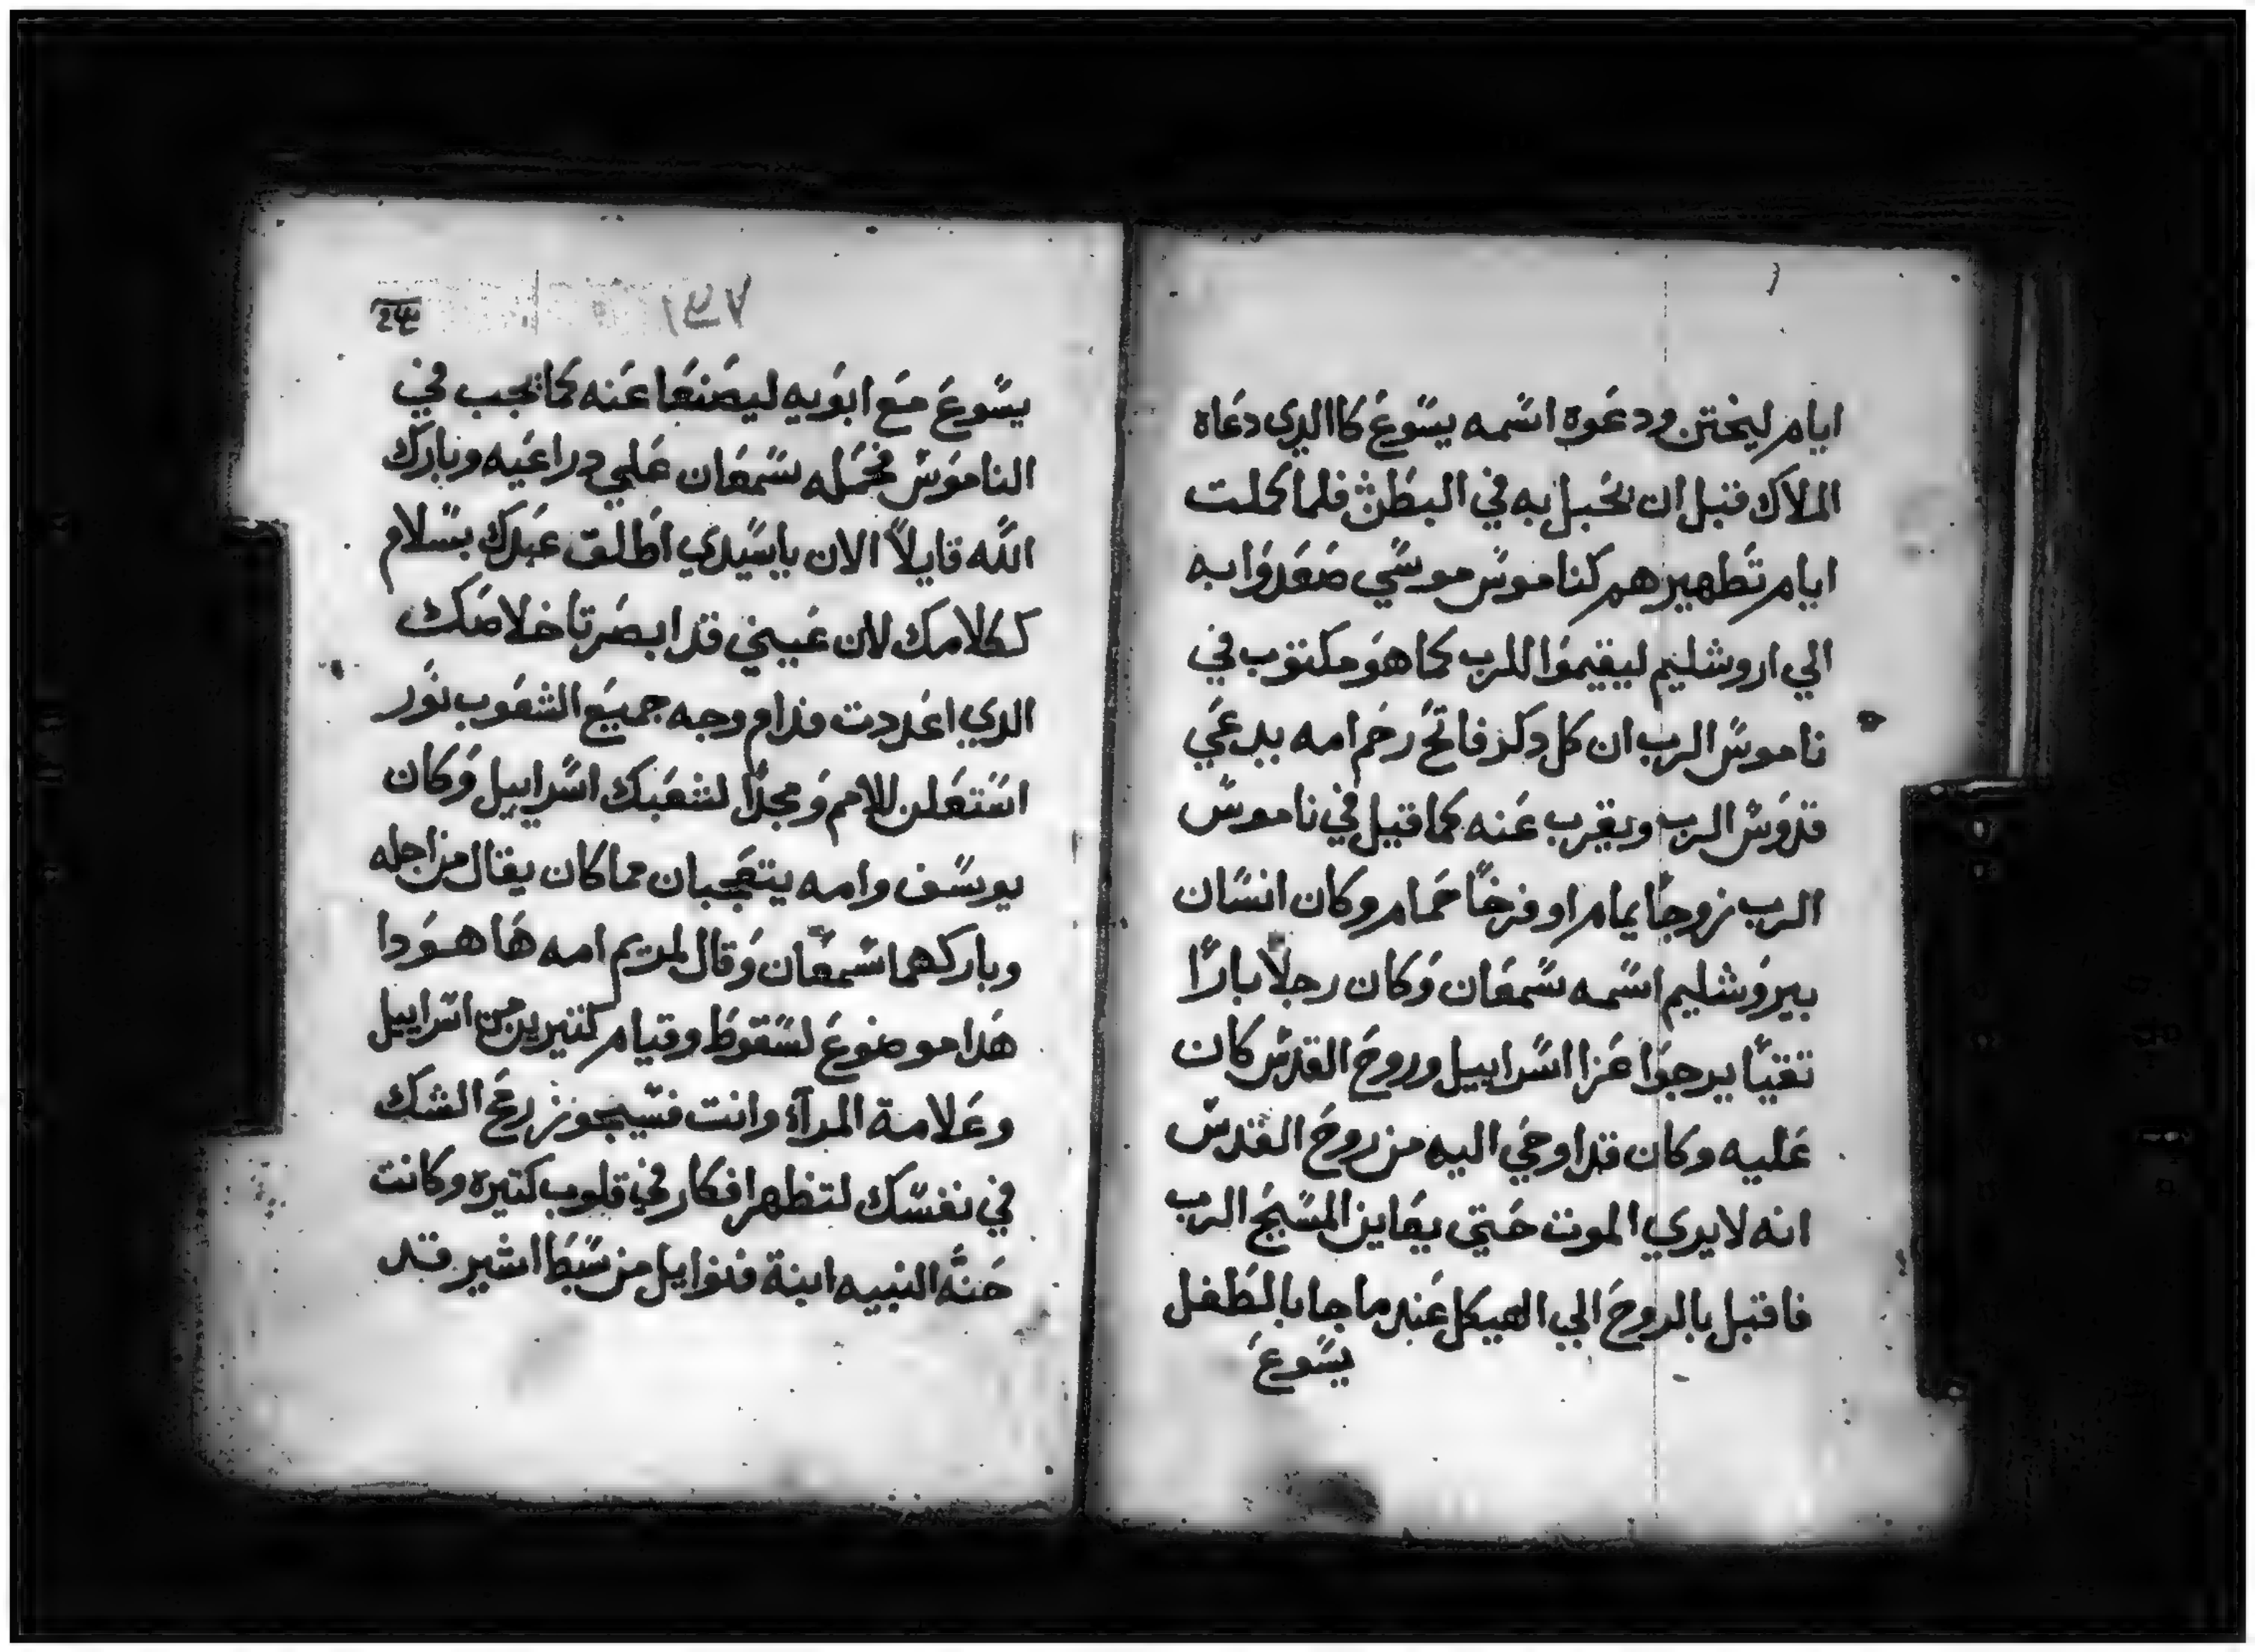 ايام ليختن ودعوه اسمه يسوع كاالدي دعاه
الملاك قبل ان تحبل به في البطن فلما كملت
ايام تطهيرهم كناموس موسي صعدوا به
الي اروشليم ليقيموا للرب كما هو مكتوب في
ناموس الرب ان كل دكر فاتح رحم امه يدعي
قدوس الرب ويقرب عنه كما قيل في ناموس
الرب زوجا يمام او فرخا حمام وكان انسان
بيروشليم اسمه سمعان وكان رجلا بارا
تقيا يرجوا عزا اسراييل وروح القدس كان
عليه وكان قد اوحي اليه من روح القدس
انه لا يري الموت حتي يعاين المسيح الرب
فاقبل بالروح الي الهيكل عندما جا بالطفل
يسوع
١٤٧
24
يسوع مع ابويه ليصنعا عنه كما يجب في
الناموس فحمله سمعان علي دراعيه وبارك
الله قايلا الان ياسيدي اطلق عبدك بسلام
ككلامك لان عيني قد ابصرتا خلاصك
الدي اعددت قدام وجه جميع الشعوب نور
استعلن للامم ومجدا لشعبك اسراييل وكان
يوسف وامه يتعجبان مما كان يقال من اجله
وباركهما سمعان وقال لمريم امه ها هودا
هدا موضوع لسقوط وقيام كتيرين من اسراييل
وعلامة المرآء وانت فسيجوز رمح الشك
في نفسك لتظهر افكار في قلوب كتيره وكانت
حنه النبيه ابنة فنوايل من سبط اشير قد